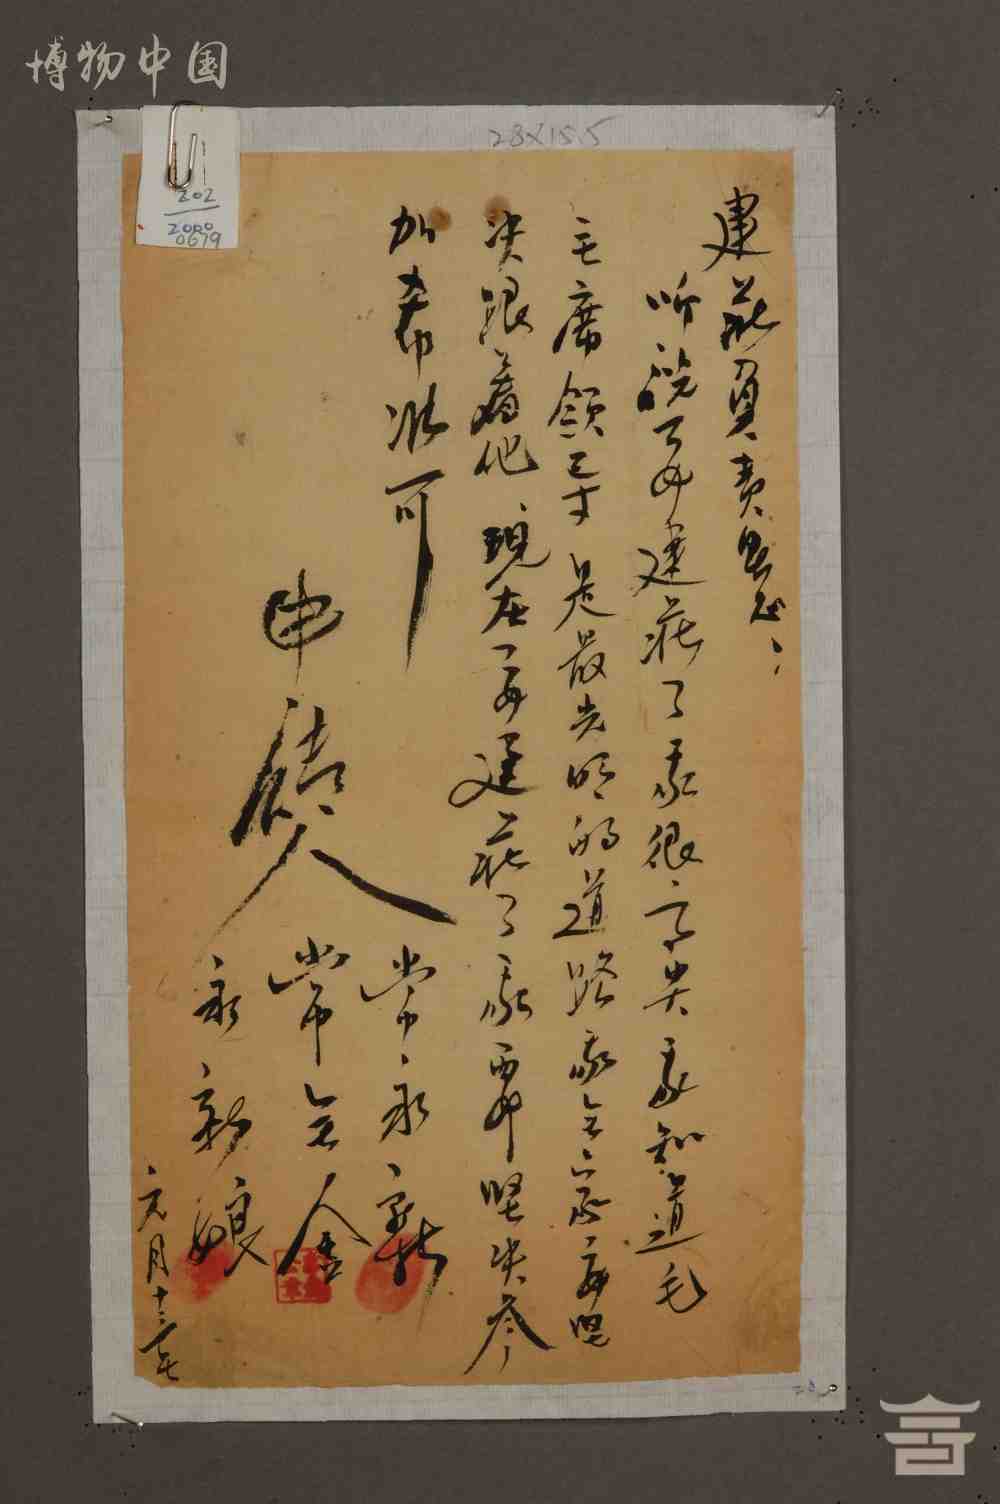 博物中国
28×15.5
202
2000
0679
建社负责同志:
听说了要建社了我很高兴我知道毛
主席领导是最光明的道路我全家要坚
决跟着他现在要建社了我要坚决参
加希准可
申请人
常永新
常全金
永新娘
元月十三号